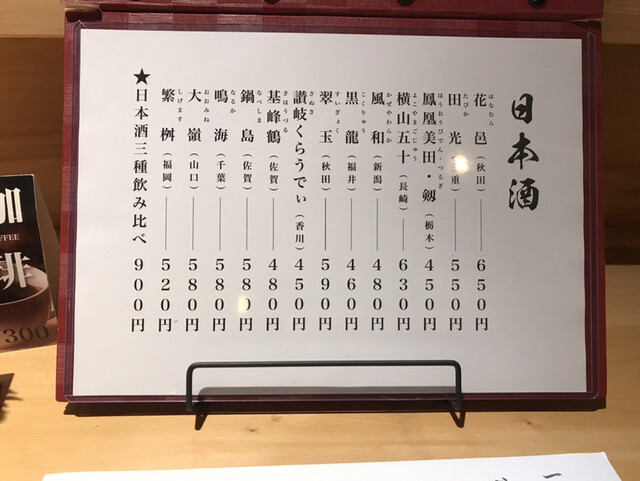 日本酒
花邑（秋田）――650円
はなむら
田光（三重）――550円
たびか
鳳凰美田・剱（栃木）450円
ほうおうびでん・つるぎ
横山五十（長崎）――630円
よこやまごじゅう
風和（新潟）――480円
かぜやわらか
黒龍（福井）――460円
こくりゅう
翠玉（秋田）――590円
すいぎょく
讃岐くらうでぃ（香川）450円
さぬき
基峰鶴（佐賀）――480円
きほうづる
鍋島（佐賀）――580円
なべしま
鳴海（千葉）――580円
なるか
大嶺（山口）――580円
おおみね
繁桝（福岡）――520円
しげます
★日本酒三種飲み比べ 900円
珈琲
COFFEE
300